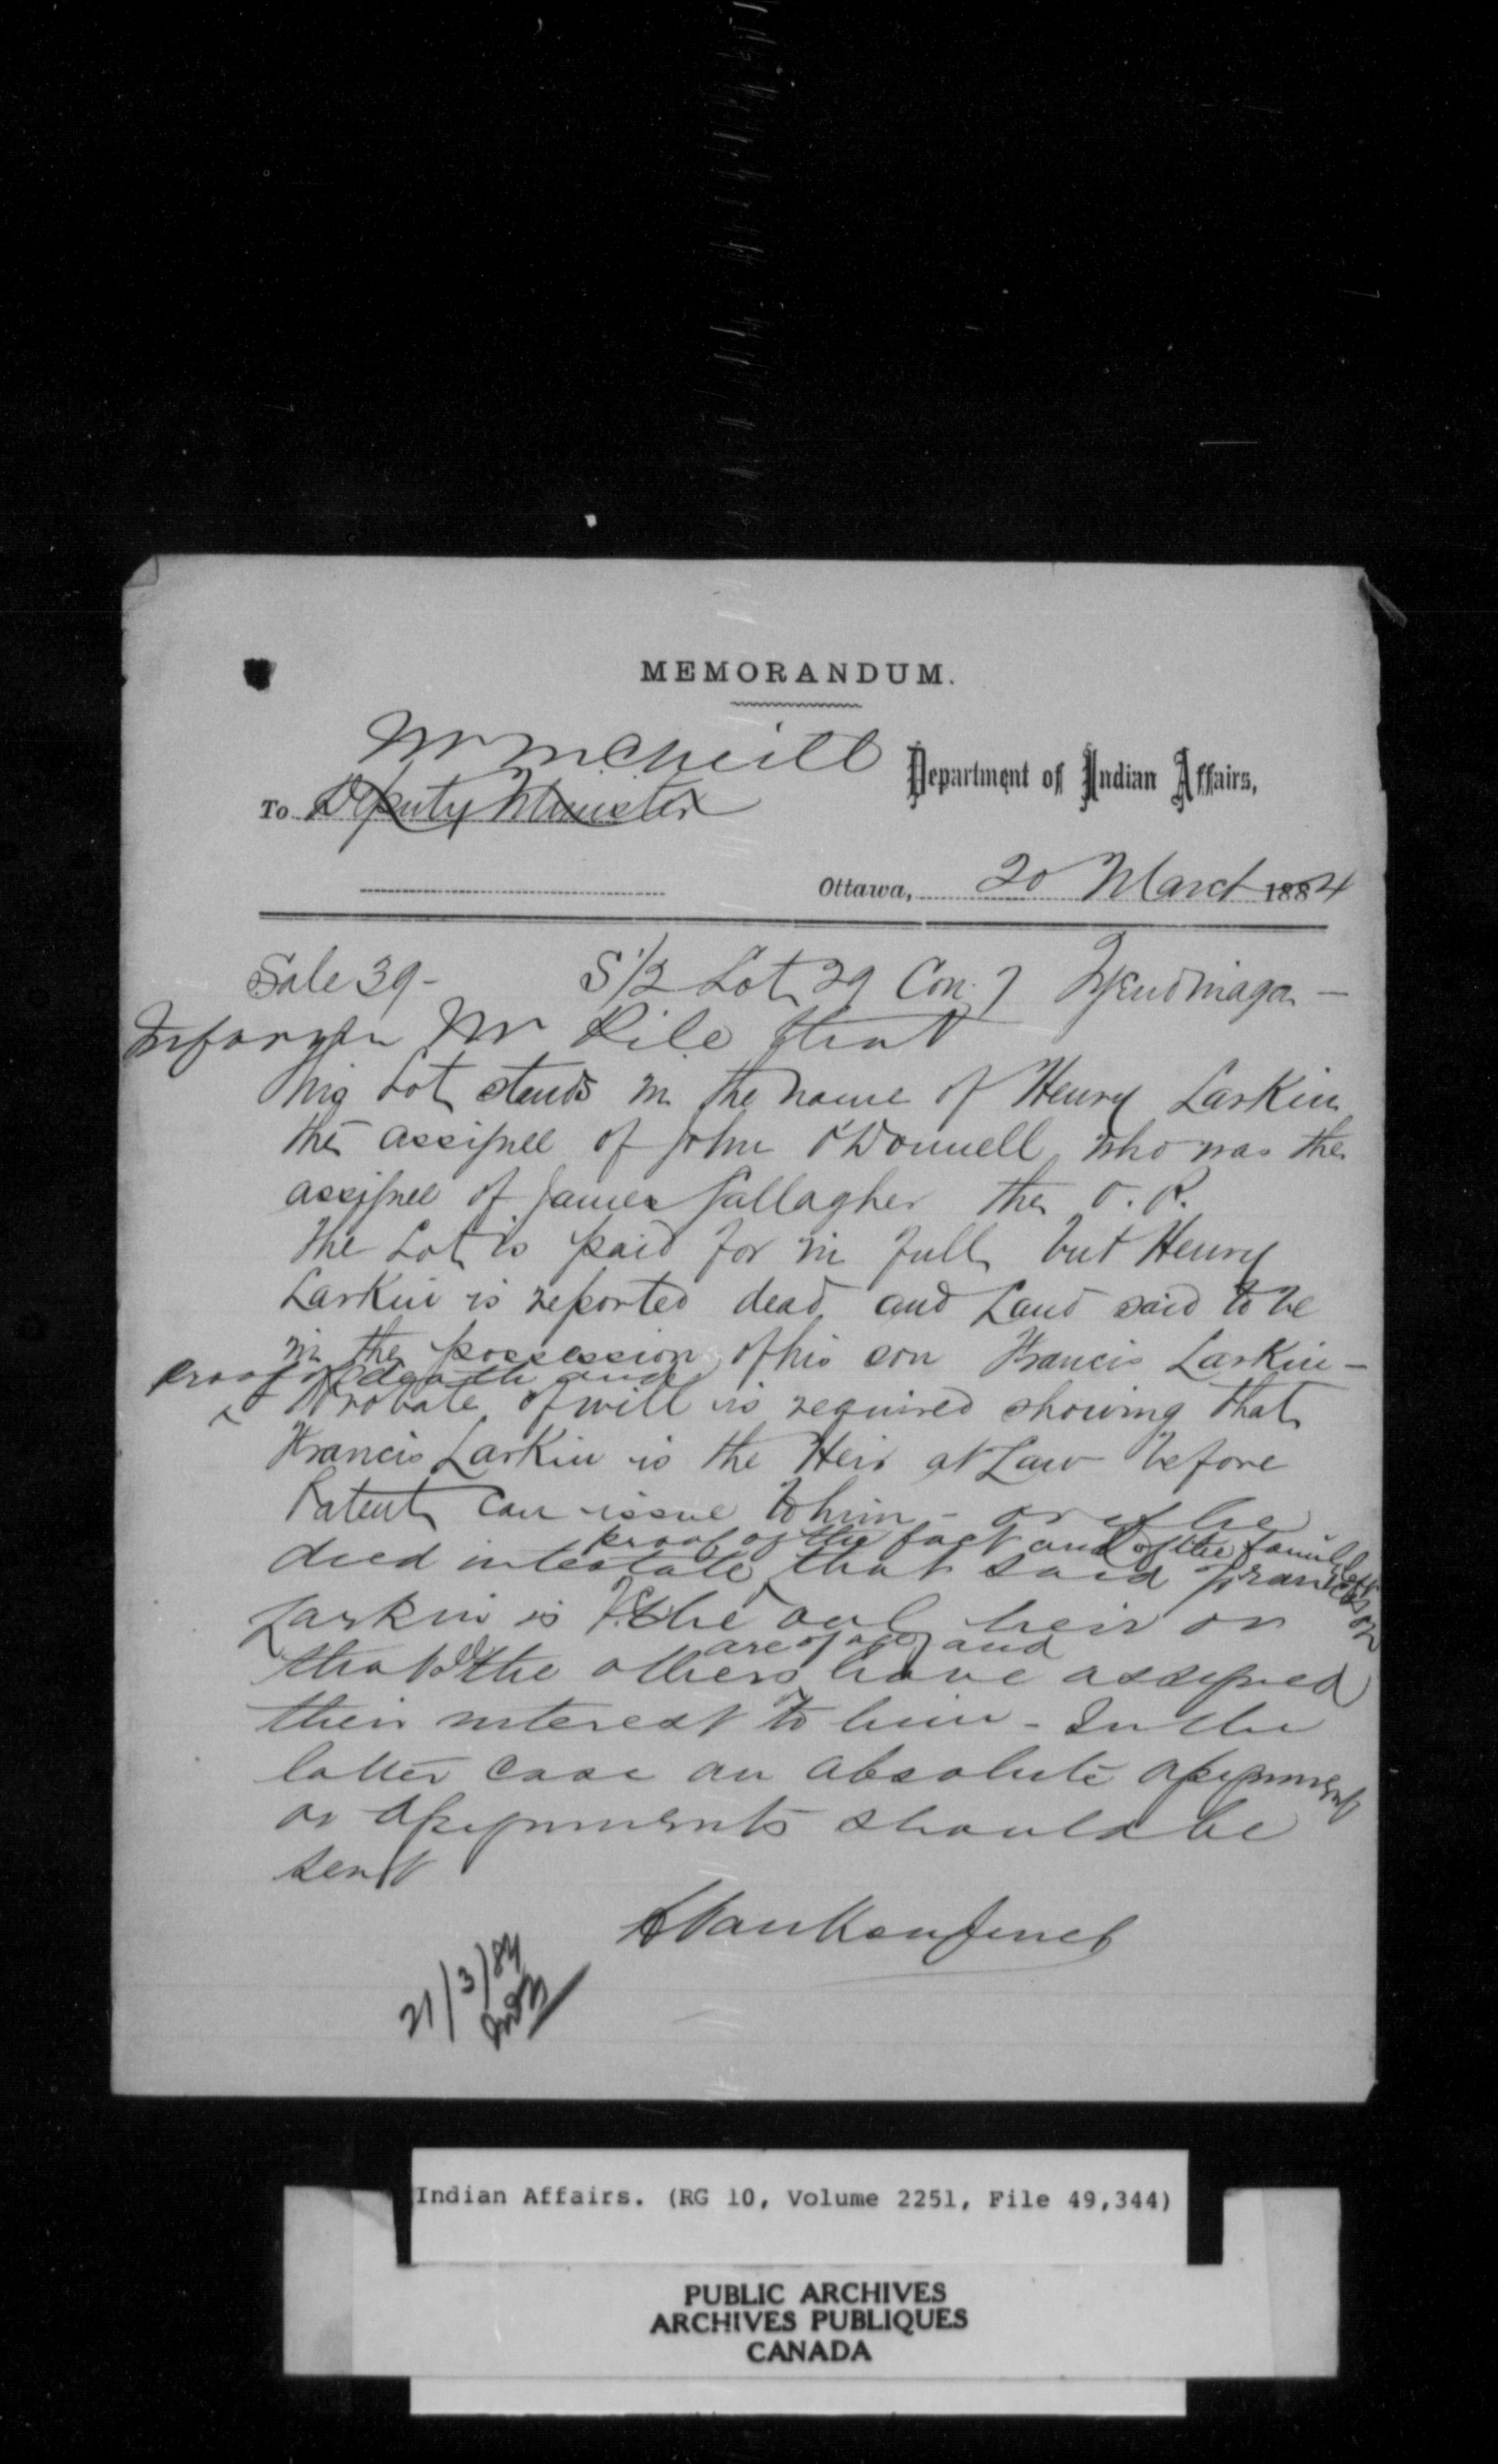 MEMORANDUM.
Mr McNeill
Department of Indian Affairs,
To Deputy Minister
Ottawa, 20 March 1884
Sale 39 - S 1/2 Lot 29 Con. 7 Tyendinaga -
Inform Mr Rile that
this Lot stands in the name of Henry Larkin
the assignee of John O'Donnell, who was the
assignee of James Gallagher the O. P.
The Lot is paid for in full, but Henry
Larkin is reported dead, and Land said to be
in the possession of his son Francis Larkin -
Proof of death and
Probate of will is required showing that
Francis Larkin is the Heir at Law before
Patent can issue to him - or if he
proof of the fact and of the family
died intestate that said Francis
Larkin is the only heir or
are of age and
that the others have assigned
their interest to him - In the
latter case an absolute assignment
or assignments should be
sent
L Vankoughnet
21/3/84
Indian Affairs. (RG 10, Volume 2251, File 49,344)
PUBLIC ARCHIVES
ARCHIVES PUBLIQUES
CANADA